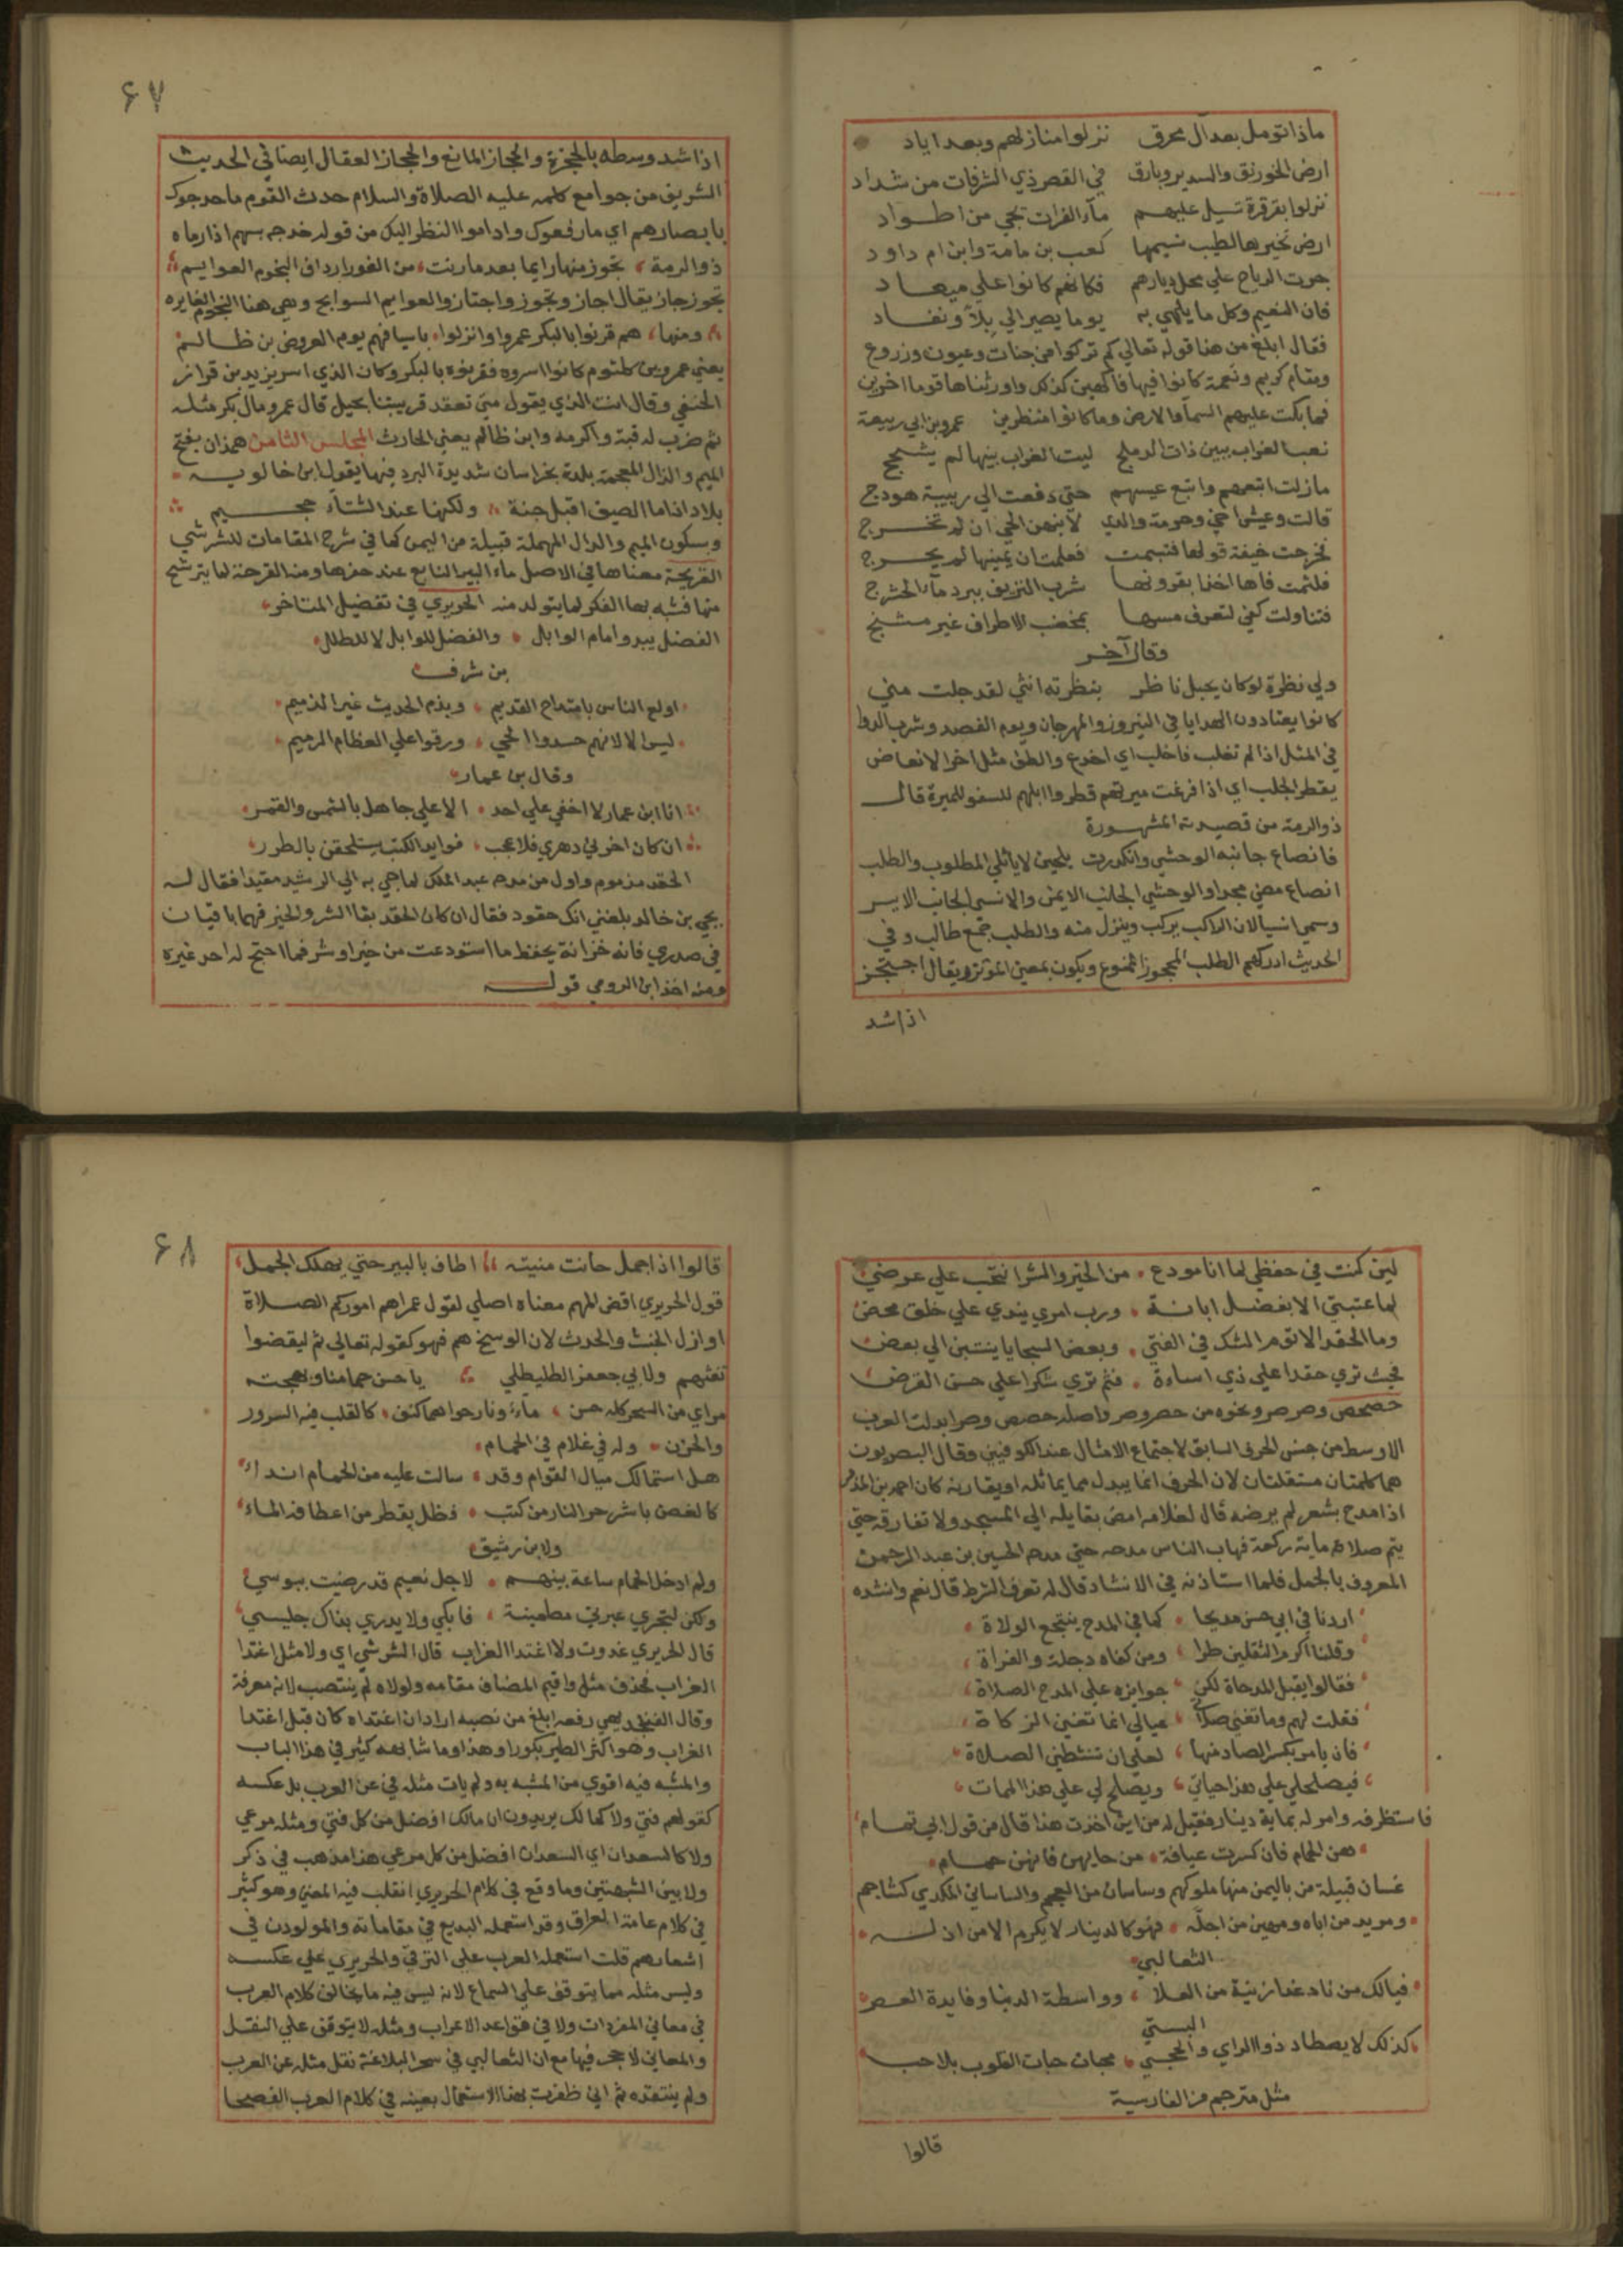 ماذا تومل بعد آل محرق نزلوا منازلهم وبعد اياد
ارض الخورنق والسدير وبارق في القصر ذي الشرفات من شداد
نزلوا بقرقرة تسيل عليهم مآء الفرات تجي من اطواد
ارض تخيرها لطيب نسيمها كعب بن مامة وابن ام داود
جرت الرياح علي محل ديارهم فكانهم كانوا علي ميعاد
فان النعيم وكل ما يلهي به يوما يصير الي بلآ ونفاد
فقال ابلغ من هذا قوله تعالي كم تركوا من جنات وعيون وزروع
ومقام كريم ونعمة كانوا فيها فاكهين كذلك واورثناها قوما اخرين
فما بكت عليهم السمآ والارض وما كانوا منظرين عمرو بن ابي ربيعة
نعب الغراب ببين ذات الدملج ليت الغراب ببينها لم يشحج
مازلت اتبعهم واتبع عيسهم حتي دفعت الي ربيبة هودج
قالت وعيش اخي وحرمة والدي لانبهن الحي ان لم تخرج
فخرجت خيفة قولها فتبسمت فعلمت ان يمينها لم يحرج
فلثمت فاها اخذا بقرونها شرب النزيف ببرد مآء الحشرج
فتناولت كفي لتعرف مسها بمخضب الاطراف غير مشنج
وقال آخر
ولي نظرة لو كان يحبل ناظر بنظرته انثي لقد حبلت مني
كانوا يعتادون الهدايا في النيروز والمهرجان ويوم الفصد وشرب الدوا
في المثل اذا لم تغلب فاخلب اي اخدع والطف مثل اخر الانفاض
يقطر الجلب اي اذا فرغت ميرتهم قطروا ابلهم للسفر للميرة قال
ذو الرمة من قصيدته المشهورة
فانصاع جانبه الوحشي وانكدرت يلحبن لا ياتلي المطلوب والطلب
انصاع مضي مجدا والوحشي الجانب الايمن والانسي الجانب الايسر
وسمي انسيا لان الراكب يركب وينزل منه والطلب جمع طالب وفي
الحديث ادركهم الطلب المحجوز الممنوع ويكون بمعني المؤتزر يقال احتجز
اذا شد
٦٧
اذا شد وسطه بالحجزة والحجاز المانع والحجاز العقال ايضا في الحديث
الشريف من جوامع كلمه عليه الصلاة والسلام حدث القوم ما حدجوك
بابصارهم اي ما رفعوك واداموا النظر اليك من قوله خدجه بسهم اذا رماه
ذو الرمة تجوز منها رايما بعد ما رنت من الغور ارداف النجوم العوايم
تجوز جاز يقال اجاز وتجوز واجتاز والعوايم السوابح وهي هنا النجوم الغايره
ومنها هم قرنوا بالبكر عمروا وانزلوا باسيافهم يوم العروض بن ظالم
يعني عمرو بن كلثوم كانوا اسروه فقرنوه بالبكر وكان الذي اسر يزيد بن قران
الحنفي وقال انت الذي يقول متي تعقد قرينتنا بحبل قال عمرو مال بكر مثله
ثم ضرب له قبة واكرمه وابن ظالم يعني الحارث المجلس الثامن همذان بفتح
الميم والذال المعجمة بلدة بخراسان شديدة البرد فيها يقول ابن خالويه
بلاد اذا ما الصيف اقبل جنة ولكنها عند الشتآء جحيم
وبسكون الميم والدال المهملة قبيلة من اليمن كما في شرح المقامات للشرشي
القريحة معناها في الاصل ماء البير النابع عند حفرها ومنه القرحة لما يترشح
منها فشبه بها الفكر لما يتولد منه الحريري في تفضيل المتاخر
الفضل يبدو امام الوابل والفضل للوابل لا للطل
بن شرف
اولع الناس بامتداح القديم وبذم الحديث غير الذميم
ليس الا لانهم حسدوا الحي ورقوا علي العظام الرميم
وقال بن عمار
انا ابن عمار لا اخفي علي احد الا علي جاهل بالشمس والقمر
ان كان اخرني دهري فلا عجب فوايد الكتب يستلحقن بالطرر
الحقد مذموم واول من مدحه عبد الملك لما جي به الي الرشيد مقيدا فقال له
يحيي بن خالد بلغني انك حقود فقال ان كان الحقد بقا الشر والخير فهما باقيان
في صدري فانه خزانة يحفظ ما استودعت من خير او شر فما احتج له احد غيره
ومنه اخذ ابن الرومي قوله
لين كنت في حفظي لما انا مودع من الخير والشر انتحيت علي عرضي
لما عتبتي الا بفضل ابانة ورب امري يندي علي خلق محض
وما الحقد الا توم الشك في الفتي وبعض السجايا ينتسبن الي بعض
فحيث تري حقدا علي ذي اساءة فثم تري شكرا علي حسن القرض
حصحص وصرصر ونحوه من حصر وصر واصله حصص وصر ابدلت العرب
الاوسط من جنس الحرف السابق لاجتماع الامثال عند الكوفيين وقال البصريون
هما كلمتان مستقلتان لان الحرف انما يبدل مما يماثله او يقاربه كان احمد بن المدبر
اذا مدح بشعر لم يرضه قال لغلامه امض بقايله الي المسجد ولا تفارقه حتي
يتم صلاة ماية ركعة فهاب الناس مدحه حتي مدحه الحسين بن عبد الرحمن
المعروف بالجمل فلما استاذنه في الانشاد قال له تعرف الشرط قال نعم وانشده
اردنا في ابي حسن مديحا كما في المدح ينتجع الولاة
وقلنا اكرم الثقلين طرا ومن كفاه دجلة والفراة
فقالوا يقبل المدحاة لكن جوايزه علي المدح الصلاة
فقلت لهم وما تغني صلاتي عيالي انما تغني الزكاة
فان يامر بكسر الصاد منها لعلي ان تنشطني الصلاة
فيصلح لي علي هذا حياتي ويصلح لي علي هذا الممات
فاستظرفه وامر له بماية دينار فقيل له من اين اخذت هذا قال من قول ابي تمام
هن الحمام فان كسرت عيافة من حايهن فانهن حمام
غسان قبيلة من باليمن منها ملوكهم وساسان من العجم والساساني المكدي كشاجم
ومريد من اباه ومهين من اجله فهو كالدينار لا يكرم الا من اذله
الثعالبي
فيالك من ناد غدا زينة من العلا وواسطة الدنيا وفايدة العصر
البستي
كذلك لا يصطاد ذو الراي والحجي محبات حبات القلوب بلا حب
مثل مترجم من الفارسية
قالوا
٦٨
قالوا اذا جمل حانت منيته اطاف بالبير حتي يهلك الجمل
قول الحريري اقض المهم معناه اصلي لقول عمر اهم اموركم الصلاة
او ازل الخبث والحدث لان الوسخ هم فهو كقوله تعالي ثم ليقضوا
تفثهم ولابي جعفر الطليطلي يا حسن حمامنا وبهجته
مراي من السحر كله حسن ماء ونار حواهما كنف كالقلب فيه السرور
والحزن وله في غلام في الحمام
هل استمالك ميال القوام وقد سالت عليه من الحمام انداء
كالغصن باشر حر النار من كثب فظل يقطر من اعطافه الماء
ولابن رشيق
ولم ادخل الحمام ساعة بينهم لاجل نعيم قد رضيت ببوسي
ولكن لتجري عبرتي مطمينة فابكي ولا يدري بذاك جليسي
قال الحريري غدوت ولا اغتدا الغراب قال الشرشي اي ولا مثل اغتدا
الغراب فحذف مثل واقيم المضاف مقامه ولولاه لم ينتصب لانه معرفة
وقال الفنجديهي رفعه ابلغ من نصبه اراد ان اغتداه كان قبل اغتدا
الغراب وهو اكثر الطير بكورا وهذا وما شابهه كثير في هذا الباب
والمشبه فيه اقوي من المشبه به ولم يات مثله في عن العرب بل عكسه
كقولهم فتي ولا كمالك يريدون ان مالك افضل من كل فتي ومثله مرعي
ولا كالسعدان اي السعدان افضل من كل مرعي هذا مذهب في ذكر
ولا بين الشبهتين وما وقع في كلام الحريري انقلب فيه المعني وهو كثير
في كلام عامة العراق وقد استعمله البديع في مقاماته والمولودن في
اشعارهم قلت استعمله العرب علي الترقي والحريري علي عكسه
وليس مثله مما يتوقف علي السماع لانه ليس فيه ما يخالف كلام العرب
في معاني المفردات ولا في قواعد الاعراب ومثله لا يتوقف علي النقل
والمعاني لا حجر فيها مع ان الثعالبي في سحر البلاغة نقل مثله عن العرب
ولم ينتقده ثم اني ظفرت بهذا الاستعمال بعينه في كلام العرب الفصحا